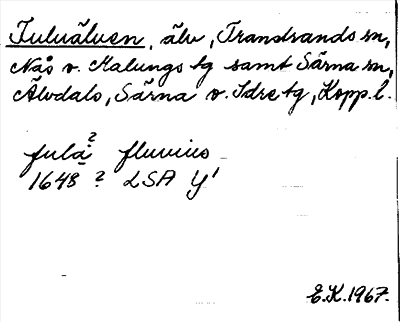 Fuluälven, älv, Transtrands sn,
Nås o. Malungs tg samt Särna sn,
Älvdals, Särna o. Idre tg, Kopp. l.
?
fula fluvius
1648 ? LSA Y'
E.K. 1967.